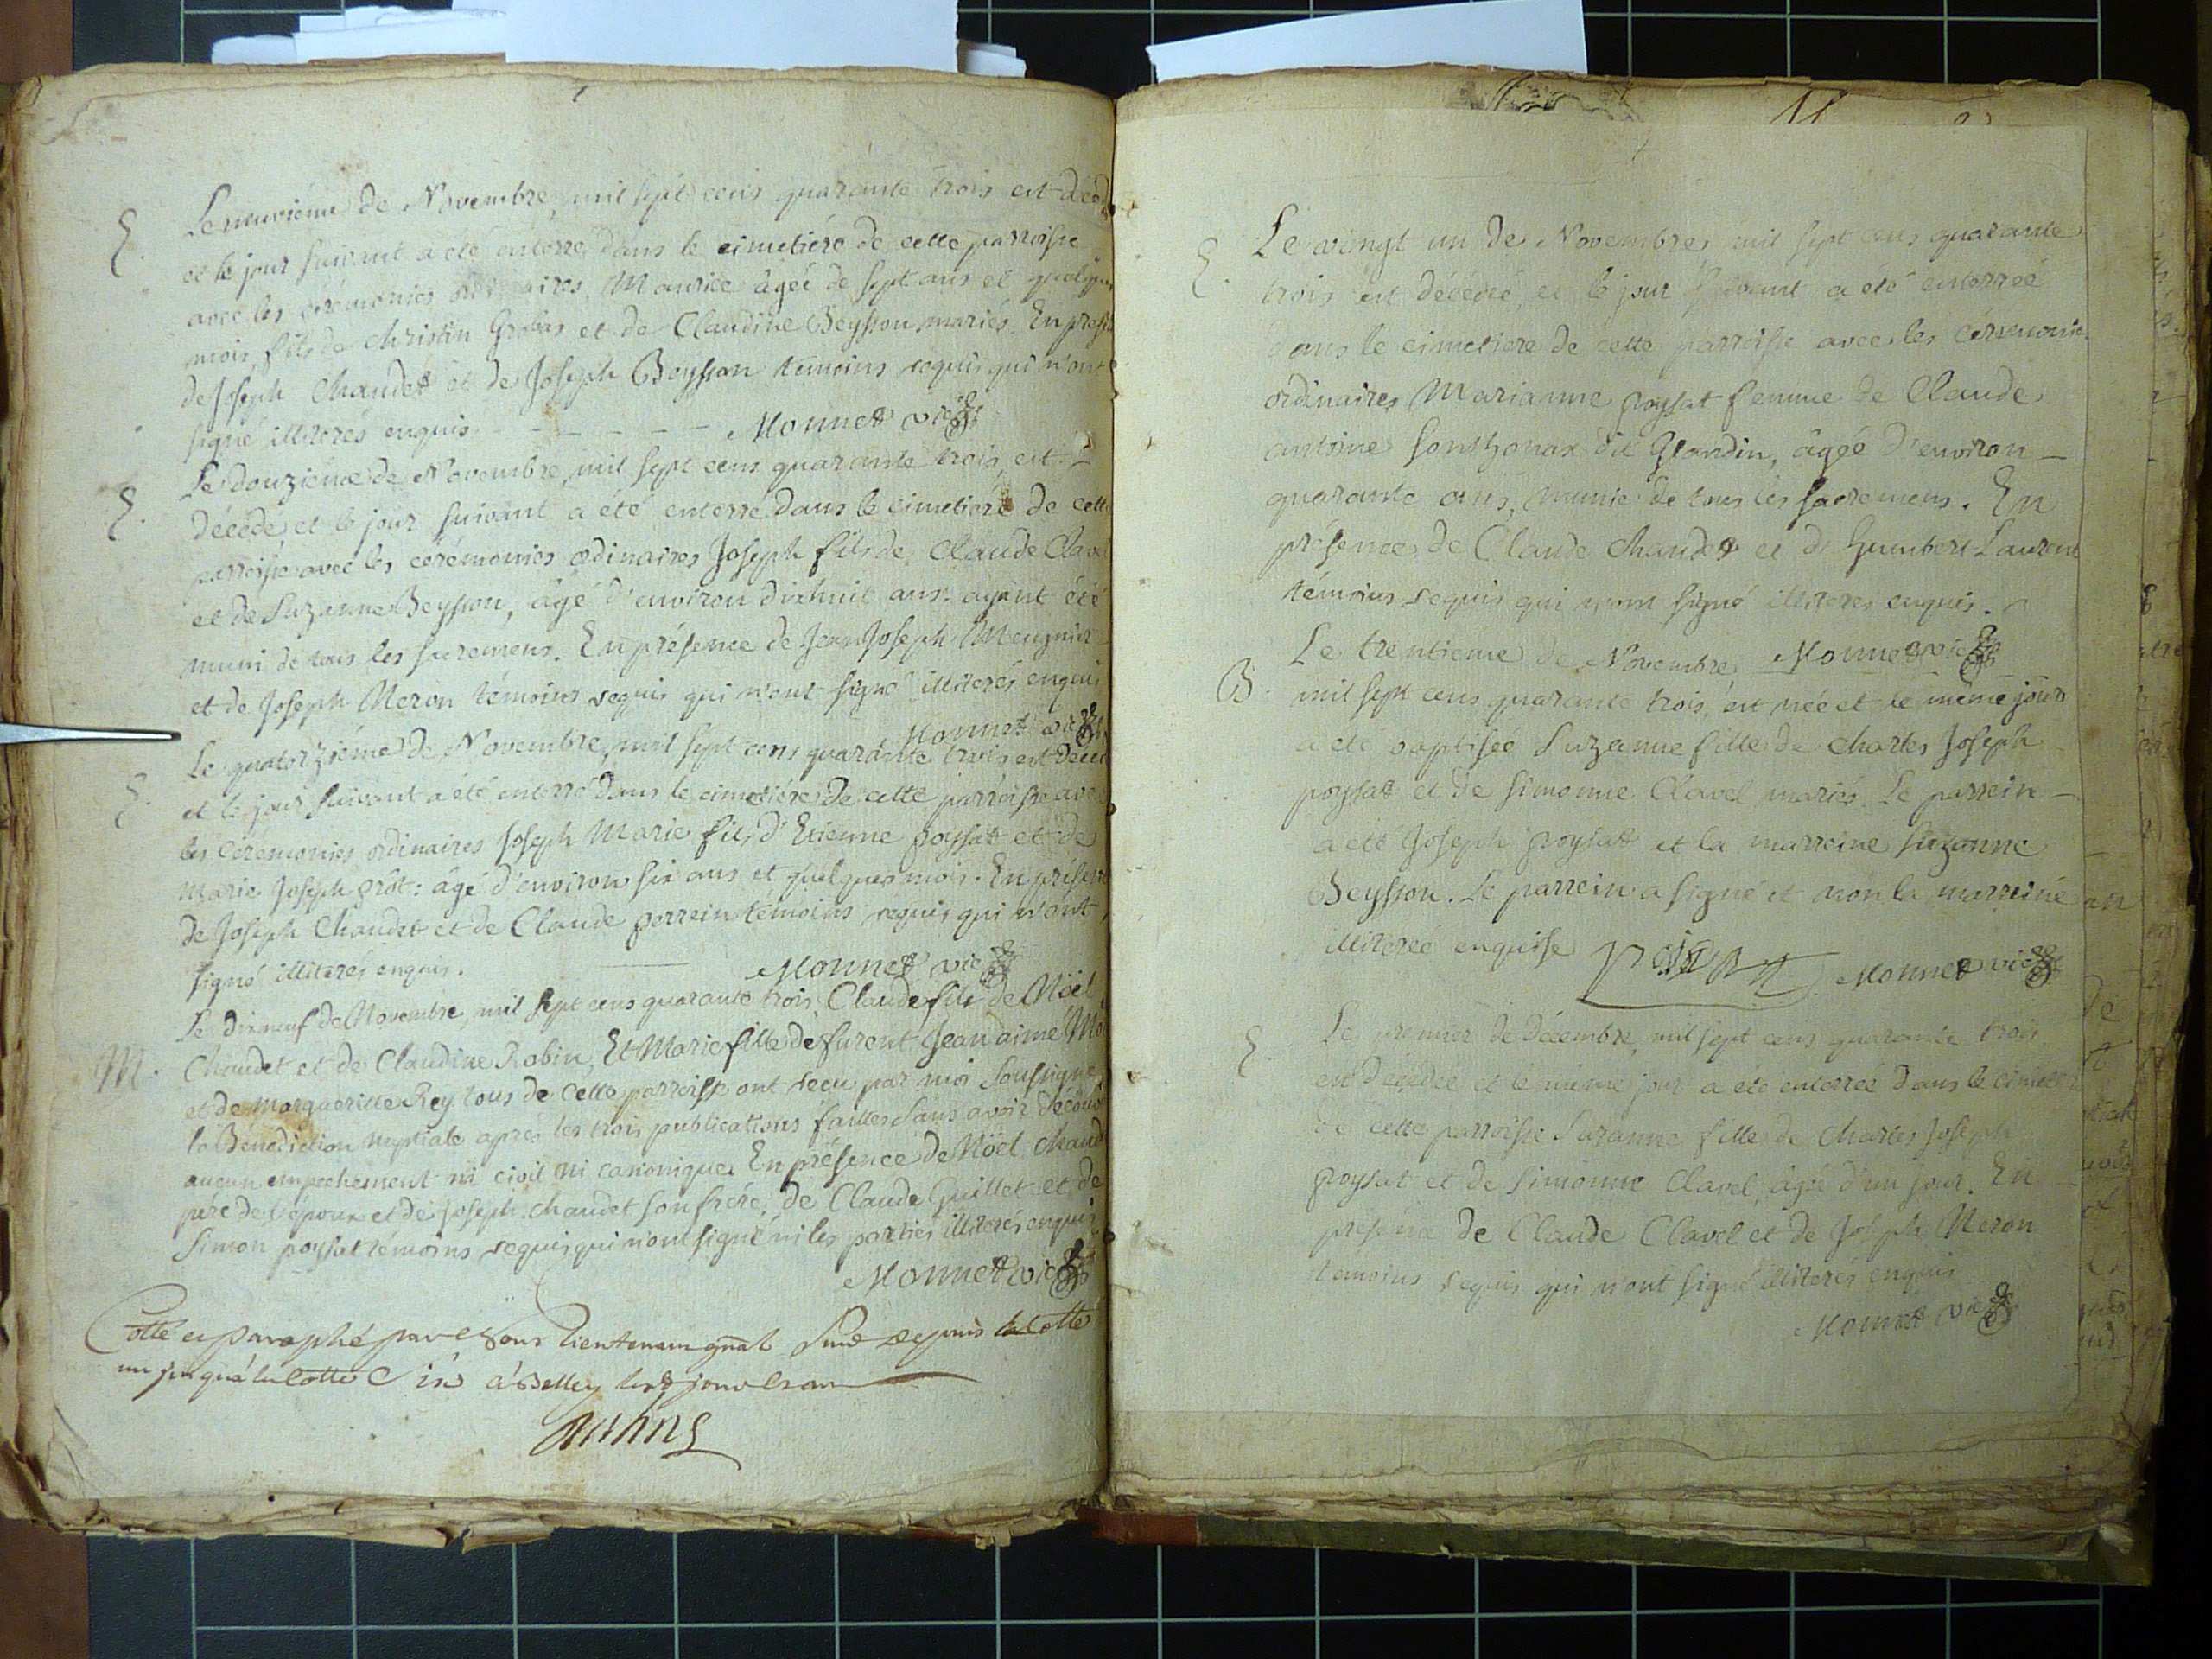 E. Le neuviéme de Novembre, mil sept cens quarante trois est decedé
et le jour suivant a été enterré dans le cimetiére de cette parroisse
avec les cérémonies ordinaires, Maurice âgée de sept ans et quelques
mois, fils de Christin Grobas et de Claudine Beysson mariés. En presen
de Joseph Chaudet et de Joseph Beysson témoins requis qui n'ont
signé illiterés enquis. Monnet vic
E. Le douziéme de Novembre, mil sept cens quarante trois, est
décédé et le jour suivant a été enterré dans le cimetiére de cette
parroisse avec les cérémonies ordinaires Joseph fils de Claude Clavel
et de Suzanne Beysson, âgé d'environ dixhuit ans: ayant été
muni de tous les sacremens. En présence de Jean Joseph Meugnier
et de Joseph Meron témoins requis qui n'ont signé illiterés enquis
Monnet vic
E. Le quatorziéme de Novembre, mil sept cens quarante trois est décédé
et le jour suivant a été enterré dans le cimetiére de cette parroisse avec
les ceremonies ordinaires Joseph Marie fils d'Etienne poysat et de
Marie Joseph prôt: âgé d'environ six ans et quelques mois. En présence
de Joseph Chaudet et de Claude perrein témoins requis qui n'ont
signé illiterés enquis. Monnet vic
M. Le dixneuf de Novembre, mil sept cens quarante trois Claude fils de Nöel
Chaudet et de Claudine Robin, Et Marie fille de furent Jean aimé
et de Margueritte Rey tous de cette parroisse ont recu par moi soussigné
la Bénédiction nuptiale apres les trois publications faittes sans avoir découv
aucun empechement ni civil ni canonique. En présence de Nöel Chaud
pére de l'époux et de Joseph chaudet son frére, de Claude Guillet et de
Simon poysat témoins requis qui n'ont signé ni les parties illiterés enquis.
Monnet vic
Cotté et paraphé par Nous Lieutenant gnal depuis la cotte
un jusqu'a la cotte à Belley
E. Le vingt un de Novembre, mil sept cens quarante
trois est décédée, et le jour suivant a été enterreé
dans le cimetiere de cette parroisse avec les céremonies
ordinaires Marianne poysat femme de Claude
antoine Sonthonax dit Grandin, âgée d'environ
quarante ans, munie de tous les sacremens. En
présence de Claude chaudet et de Humbert Laurent
témoins requis qui n'ont signé illiterés enquis.
Monnet vic
B. Le trentieme de Novembre
mil sept cens quarante trois, est née et le même jour
a été baptisée Suzanne fille de Charles Joseph
poysat et de Simonne Clavel mariés. Le parrein
a été Joseph poysat et la marreine Suzanne
Beysson. Le parrein a signé et non la marreine
illitereé enquise poisat Monnet vic
E. Le premier de décembre, mil sept cens quarante trois
est décédée et le même jour a été enterreé dans le cimetiere
de cette parroisse Suzanne fille de Charles Joseph
poysat et de Simonne Clavel, âgée d'un jour. En
présence de Claude Clavel et de Joseph Meron
témoins requis qui n'ont signé illiterés enquis
Monnet vic